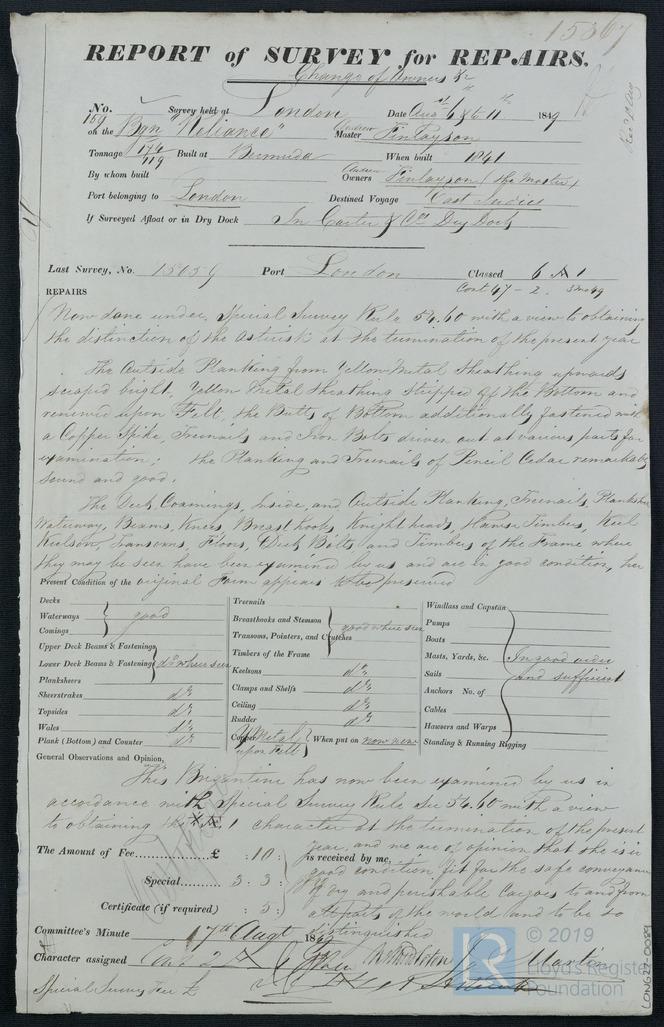 15367
REPORT of SURVEY for REPAIRS.
Change of Owners &c
No. 159 Survey held at London Date Augt 6th & 11th 1849
on the Bgn "Reliance" Master Andrew Finlayson
Tonnage 174 119 Built at Bermuda When built 1841
By whom built Owners Andrew Finlayson (the Master)
Port belonging to London Destined Voyage East Indies
If Surveyed Afloat or in Dry Dock In Carter & Cos Dry Dock
Last Survey, No. 15059 Port London Classed 6 A 1
Cont 47 - 2.
REPAIRS
Now done under Special Survey Rule 54.60 with a view to obtaining
the distinction of the asterisk at the termination of the present year
The Outside Planking from Yellow Metal Sheathing upwards
scraped bright, Yellow Metal Sheathing stripped off the Bottom and
renewed upon Felt, the Butts of Bottom additionally fastened with
a Copper Spike, Treenails and Iron Bolts driven out at various parts for
examination; the Planking and Treenails of Pencil Cedar remarkably
sound and good.
The Deck, Coamings, Inside, and Outside Planking, Treenails, Planksheer
Waterway, Beams, Knees, Breasthooks, Knightheads, Hawse Timbers, Keel
Keelson, Transoms, Floors, Deck Bolts and Timbers of the Frame where
they may be seen have been examined by us and are in good condition, her
Present Condition of the original Form appears to be preserved
Decks
Waterways good
Comings
Upper Deck Beams & Fastenings
Lower Deck Beams & Fastenings do where seen
Planksheers
Sheerstrakes do
Topsides do
Wales do
Plank (Bottom) and Counter do
Treenails
Breasthooks and Stemson good where seen
Transoms, Pointers, and Crutches
Timbers of the Frame
Keelsons do
Clamps and Shelfs do
Ceiling do
Rudder do
Copper Y Metal upon Felt When put on now new
Windlass and Capstan
Pumps
Boats
Masts, Yards, &c. In good order
Sails and sufficient
Anchors No. of
Cables
Hawsers and Warps
Standing & Running Rigging
General Observations and Opinion,
This Brigantine has now been examined by us in
accordance with Special Survey Rule Sec 54.60 with a view
to obtaining the 1 character at the termination of the present
year, and we are of opinion that she is in
good condition, fit for the safe conveyance
of dry and perishable Cargoes to and from
all parts of the world and to be so
distinguished
The Amount of Fee............... £ : 10 : is received by me,
Special.... 3 : 3 :
Certificate (if required) : 5 :
Committee's Minute 17th Augt 1849
Character assigned
Martin
Special Survey Fee £
© 2019
Lloyd's Register
Foundation
LONG27-0089